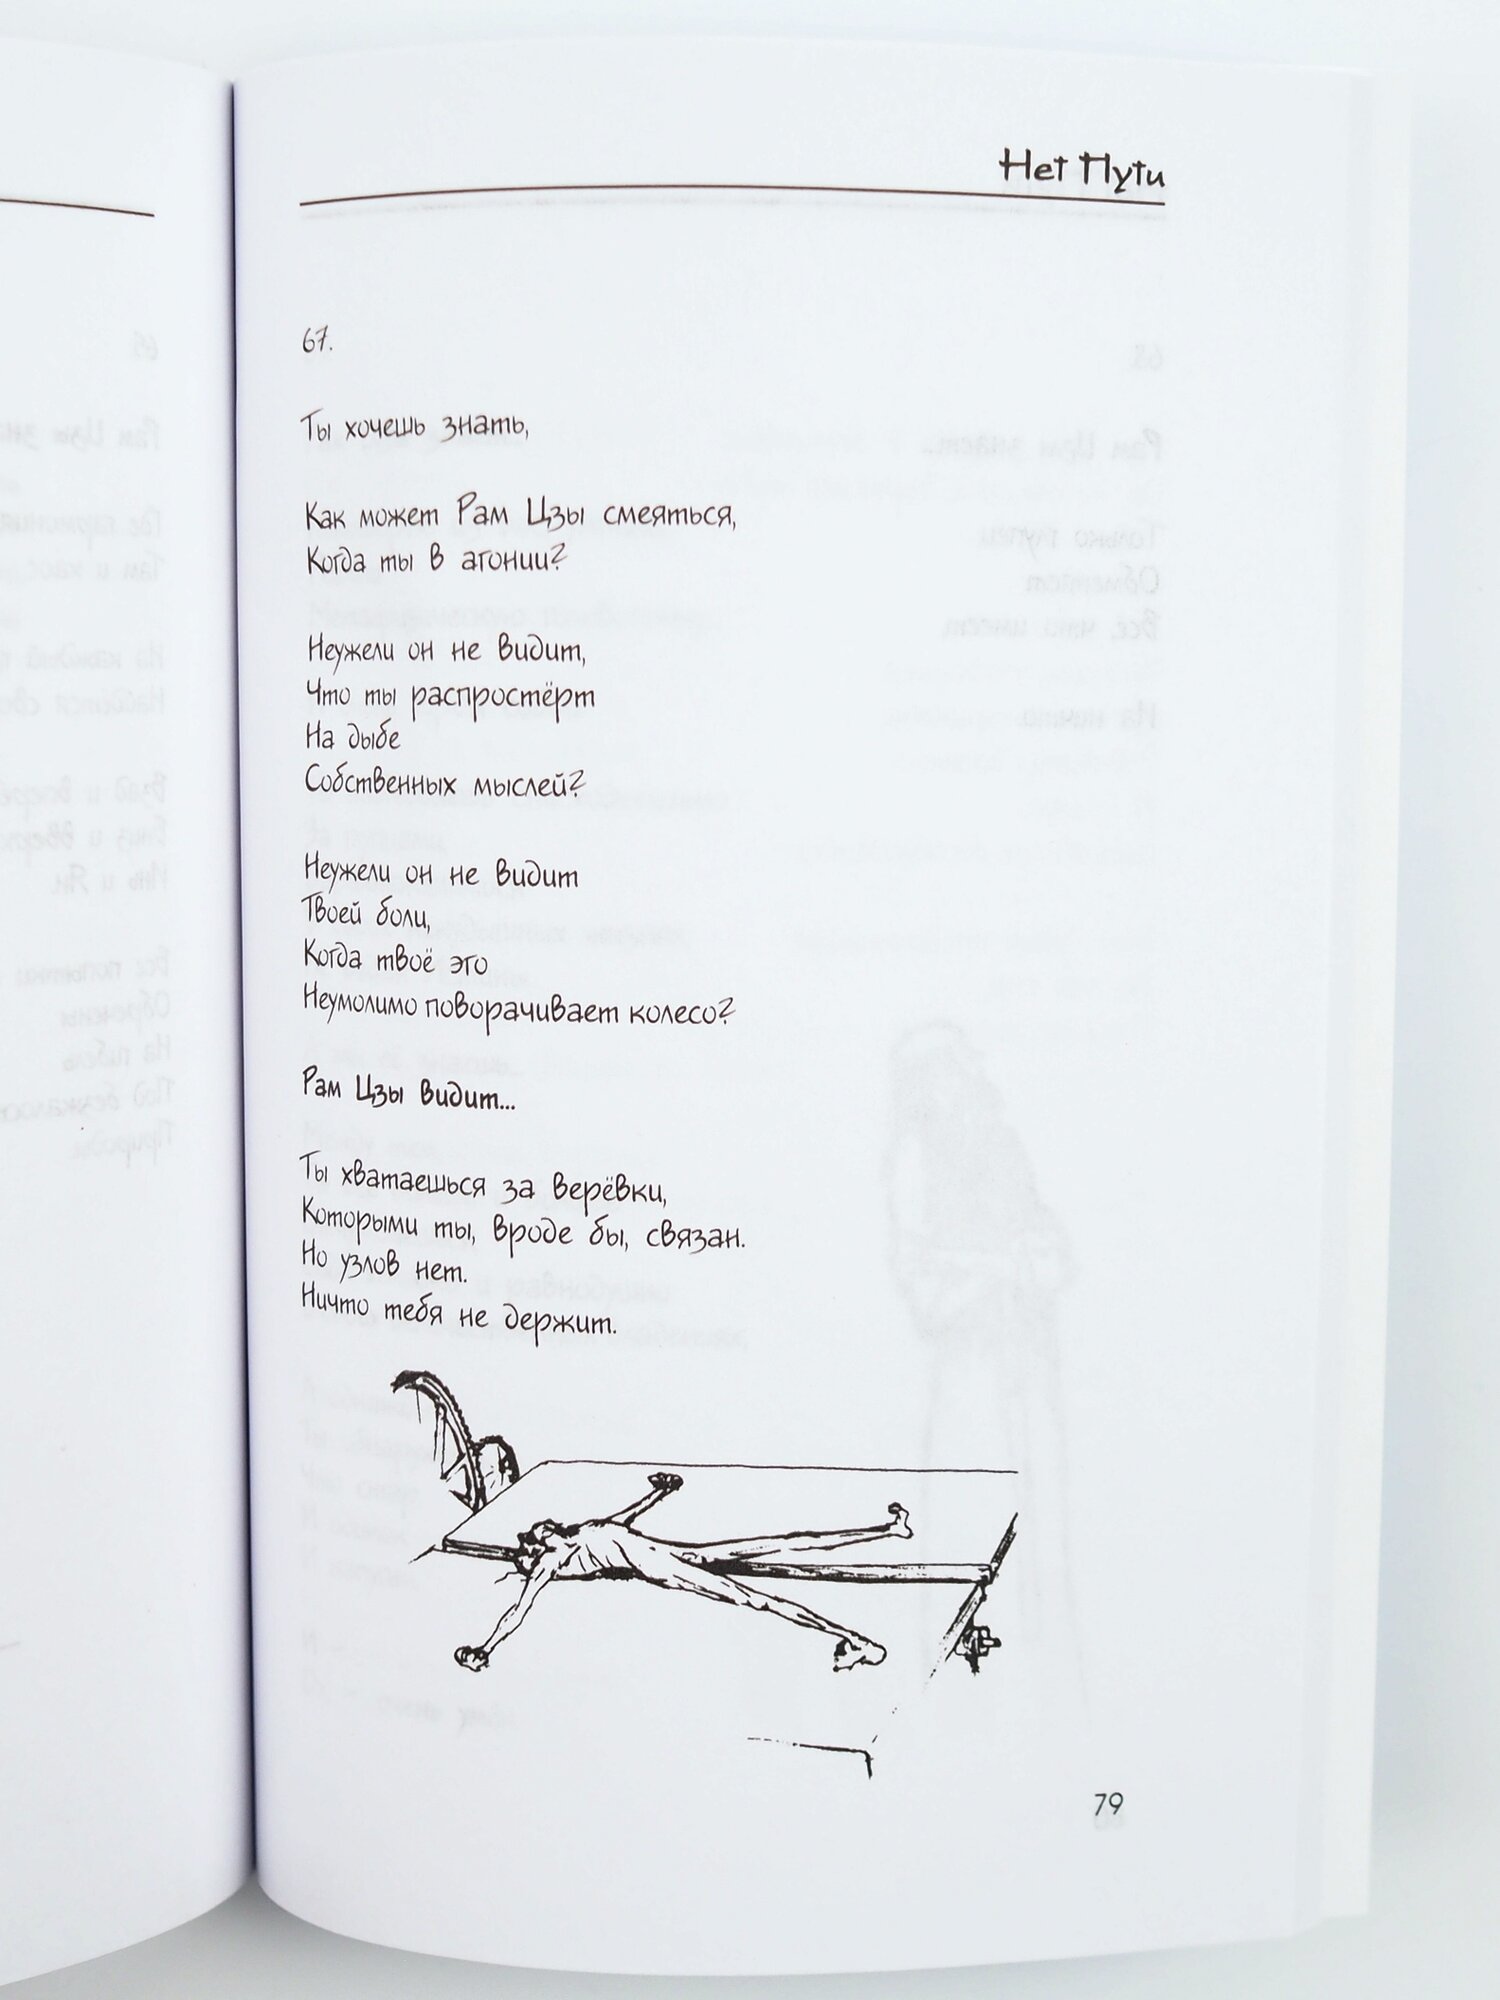 Нет Пути
67.
Ты хочешь знать,
Как может Рам Цзы смеяться,
Когда ты в агонии?
Неужели он не видит,
Что ты распростёрт
На дыбе
Собственных мыслей?
Неужели он не видит
Твоей боли,
Когда твоё эго
Неумолимо поворачивает колесо?
Рам Цзы видит...
Ты хватаешься за верёвки,
Которыми ты, вроде бы, связан.
Но узлов нет.
Ничто тебя не держит.
79